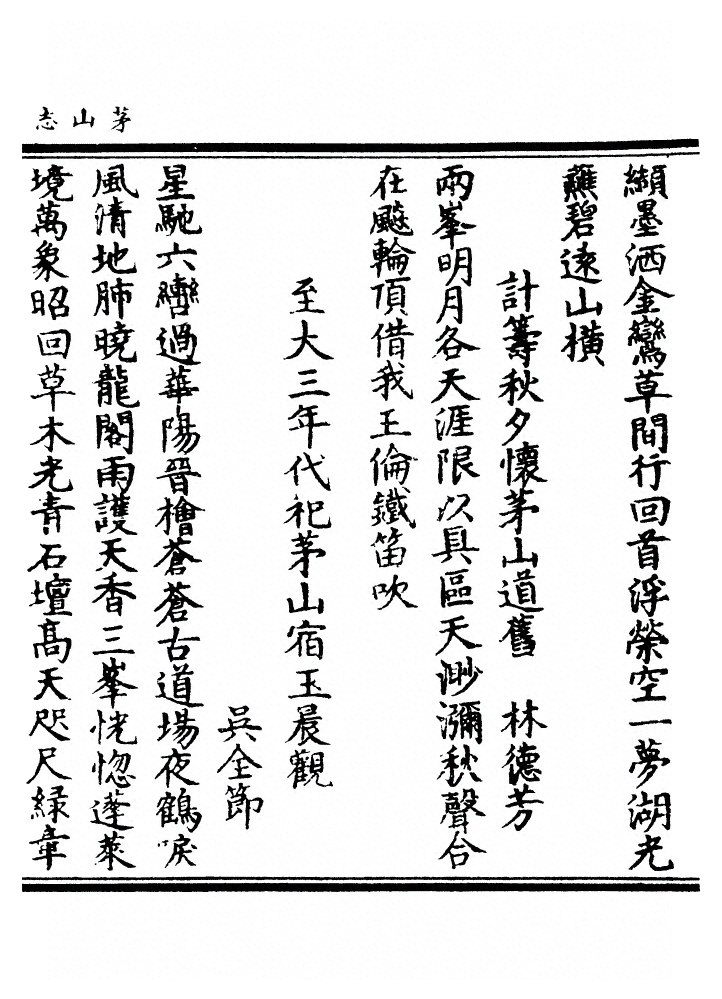 茅山志
纈墨洒金鸞草間行回首浮榮空一夢湖光
蘸碧遠山橫
計籌秋夕懷茅山道舊　林德芳
兩峯明月各天涯限以具區天渺瀰秋聲合
在飈輪頂借我王倫鐵笛吹
至大三年代祀茅山宿玉晨觀
吳全節
星馳六轡過華陽晉檜蒼蒼古道場夜鶴唳
風清地肺曉龍閣雨護天香三峯恍惚蓬萊
境萬象昭回草木光青石壇高天咫尺緑章